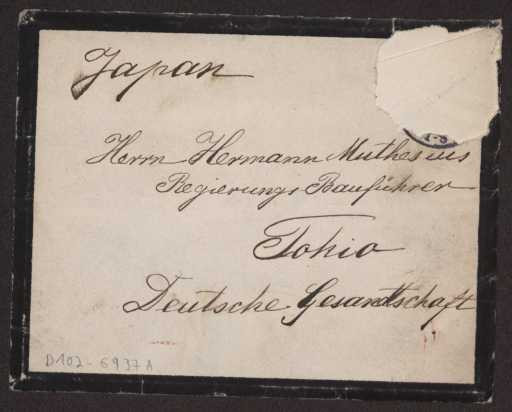 Japan
Herrn Hermann Muthesius
Regierungs Bauführer
Tokio
Deutsche Gesandtschaft
D102-6937A